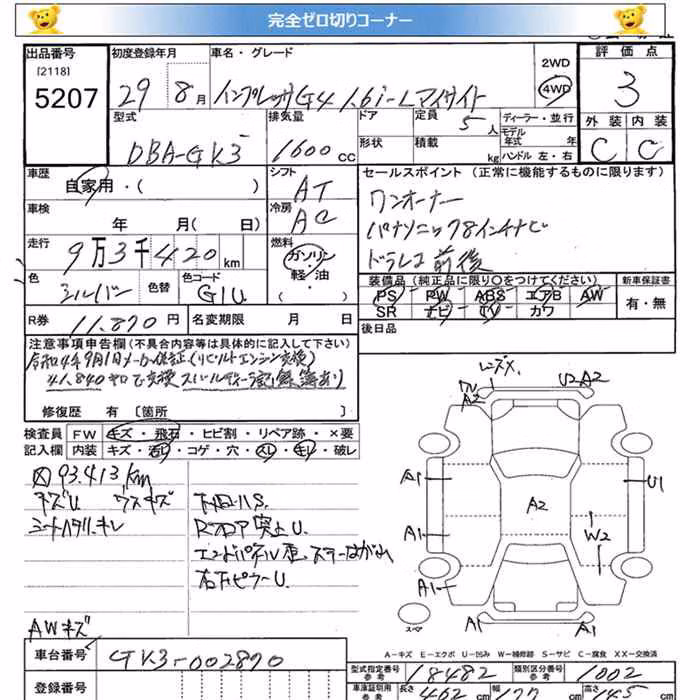 完全ゼロ切りコーナー
出品番号
[2118]
5207
初度登録年月
29年 8月
車名・グレード
インプレッサG4 1.6i-Lアイサイト
2WD
4WD
評価点
3
外装 内装
C C
型式
DBA-GK3
排気量
1600 cc
ドア
形状
定員
5人
積載
kg
ディーラー・並行
モデル年式 年
ハンドル 左・右
車歴
自家用・( )
シフト
AT
車検
年 月( 日)
冷房
AC
走行
9万3千420 km
燃料
ガソリン
軽・油
( )
色
シルバー
色替
色コード
G1U
R券
11,870円
名変期限 月 日
セールスポイント (正常に機能するものに限ります)
ワンオーナー
パナソニック8インチナビ
ドラレコ前後
装備品(純正品に限り○をつけてください)
PS PW ABS エアB AW
SR ナビ TV カワ
新車保証書
有・無
後日品
注意事項申告欄(不具合内容等は具体的に記入して下さい)
令和4年9月1日メーカー保証(リビルトエンジン交換)
41,840キロで交換 スバルディーラー記録簿あり
修復歴 有 [箇所 ]
検査員
記入欄
FW キズ・飛石・ヒビ割・リペア跡・×要
内装 キズ・汚レ・コゲ・穴・スレ・キレ・破レ
93,413km
キズU ウスキズ
シートハタリ、キレ
下回りS
Rフロア突上U
右下ピラーU
AWキズ
レンズX
A2
U2 A2
A1
U1
A2
A1
W2
A1
スペア
A1
A1
A-キズ E-エクボ U-凹み W-補修跡 S-サビ C-腐食 XX-交換済
車台番号
GK3-002870
登録番号
型式指定番号
参考
18482
類別区分番号
参考
1002
車庫証明用
参考
長さ
462 cm
幅
177 cm
高さ
145 cm